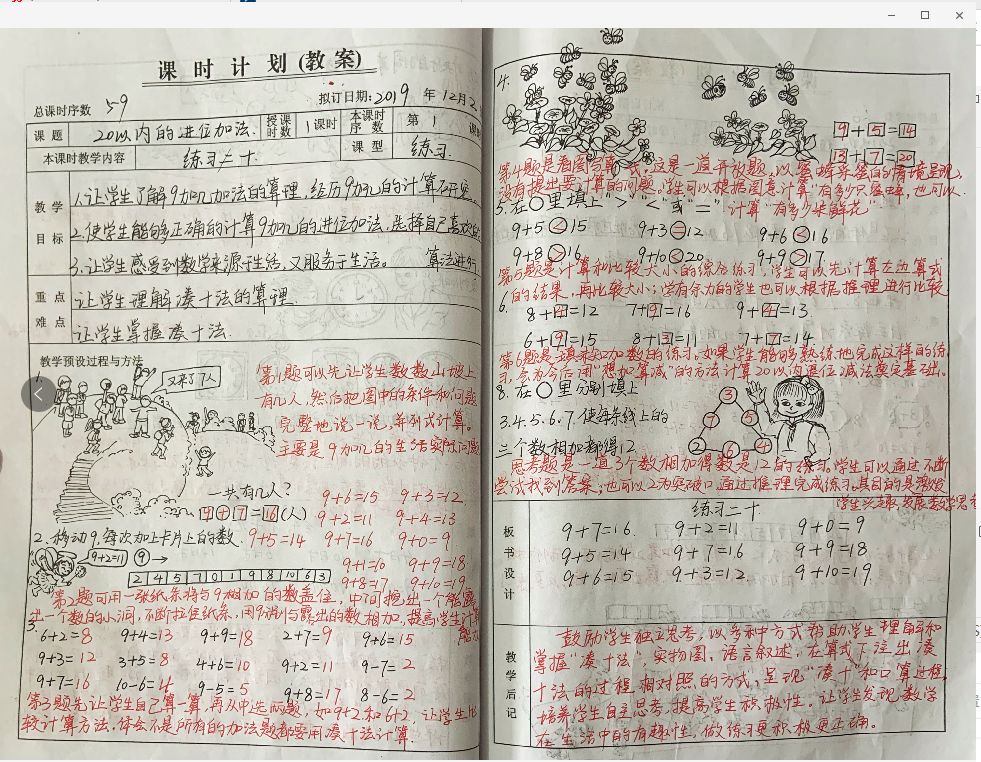 课时计划(教案)
总课时序数 59
拟订日期:2019年12月2
课题 20以内的进位加法.
授课时数 1课时
本课时序数 第1课时
本课时教学内容 练习二十.
课型 练习.
教学目标
1.让学生了解9加几加法的算理,经历9加几的计算
2.使学生能够正确的计算9加几的进位加法,选择自己喜欢的
算法进行
3.让学生感受到数学来源于生活,又服务于生活。
重点 让学生理解凑十法的算理.
难点 让学生掌握凑十法.
教学预设过程与方法
1.
又来了7人
第1题可以先让学生数数山坡上
有几人,然后把图中的条件和问题
完整地说一说,并列式计算。
主要是9加几的生活实际问题
一共有几人?
9+7=16(人)
9+6=15 9+3=12
9+2=11 9+4=13
2.移动9,每次加上卡片上的数. 9+5=14 9+7=16 9+0=9
9+2=11 9
9+1=10 9+9=18
2 4 5 7 0 1 9 8 10 6 3
9+8=17 9+10=19
第2题可用一张纸条将与9相加的数盖住,中间挖出一个能露
出一个数的小洞,不断拉住纸条,用9测与露出的数相加,提高学生计算
能力
3.
6+2=8 9+4=13 9+9=18 2+7=9 9+6=15
9+3=12 3+5=8 4+6=10 9+2=11 9-7=2
9+7=16 10-6=4 9-5=5 9+8=17 8-6=2
第3题先让学生自己算一算,再从中选两题,如9+2和6+2,让学生比
较计算方法.体会不是所有的加法题都要用凑十法计算.
4.
9+5=14
13+7=20
第4题是看图写算式,这是一道开放题,以蜜蜂采蜜的情境呈现,
没有提出要计算的问题.学生可以根据图意计算"有多少只蜜蜂,也可以
计算"有多少朵鲜花"
5.在○里填上">""<"或"="
9+5<15 9+3=12 9+6<16
9+8>16 9+10<20 9+9>17
第5题是计算和比较大小的综合练习,学生可以先计算左边算式
的结果,再比较大小;学有余力的学生也可以根据推理进行比较
6.
8+4=12 7+9=16 9+4=13.
6+9=15 8+3=11 7+7=14
第6题是填未知加数的练习.如果学生能够熟练地完成这样的练
习,会为今后用"想加算减"的方法计算20以内退位减法奠定基础.
8.在○里分别填上
3.4.5.6.7.使每条线上的
三个数相加都得12
3
7 5
2 6 4
思考题是一道3个数相加得数是12的练习.学生可以通过不断
尝试找到答案;也可以2为突破口通过推理完成练习.其目的是激发
学生兴趣,发展数学思考
板书设计
练习二十.
9+7=16. 9+2=11 9+0=9
9+5=14 9+7=16 9+9=18
9+6=15 9+3=12. 9+10=19.
教学后记
鼓励学生独立思考,以多种方式帮助学生理解和
掌握"凑十法",实物图、语言叙述、在算式下注出凑
十法的过程相对照的方式,呈现"凑十"和口算过程,
培养学生自主思考,提高学生积极性.让学生发现数学
在生活中的有趣性,做练习更积极更正确.